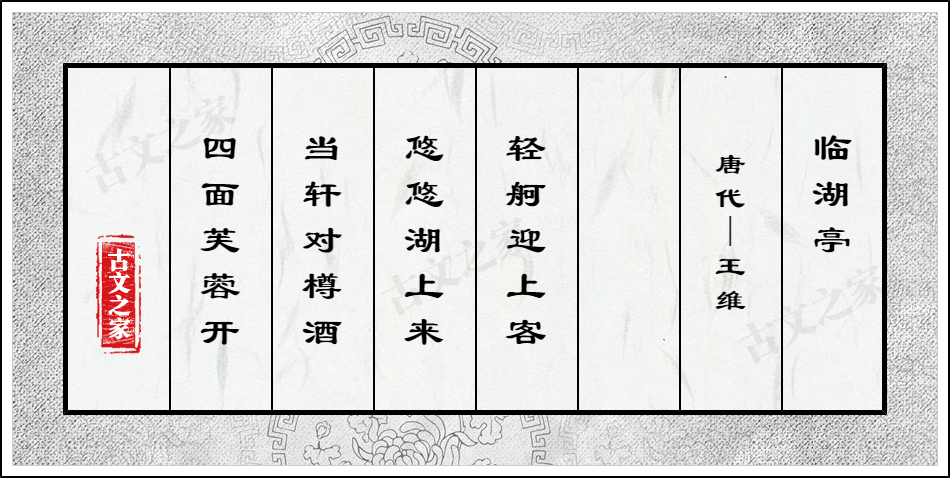 临湖亭
唐代—王维
轻舸迎上客
悠悠湖上来
当轩对樽酒
四面芙蓉开
古文之家
古文之家
古文之家
古文之家